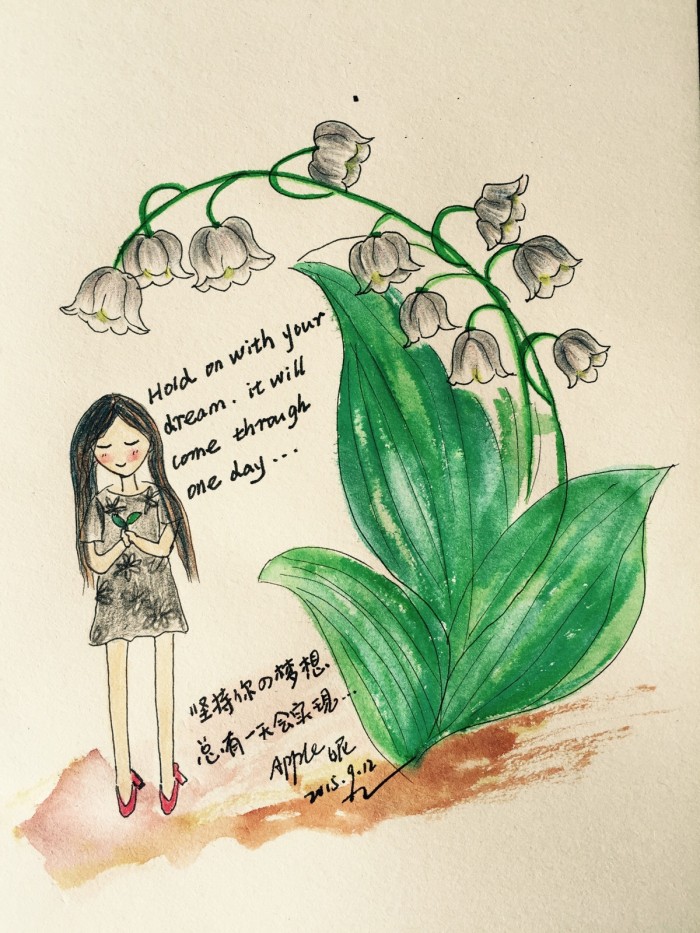 Hold on with your
dream. it will
come through
one day...
坚持你の梦想.
总有一天会实现...
Apple 呢
2015.9.12